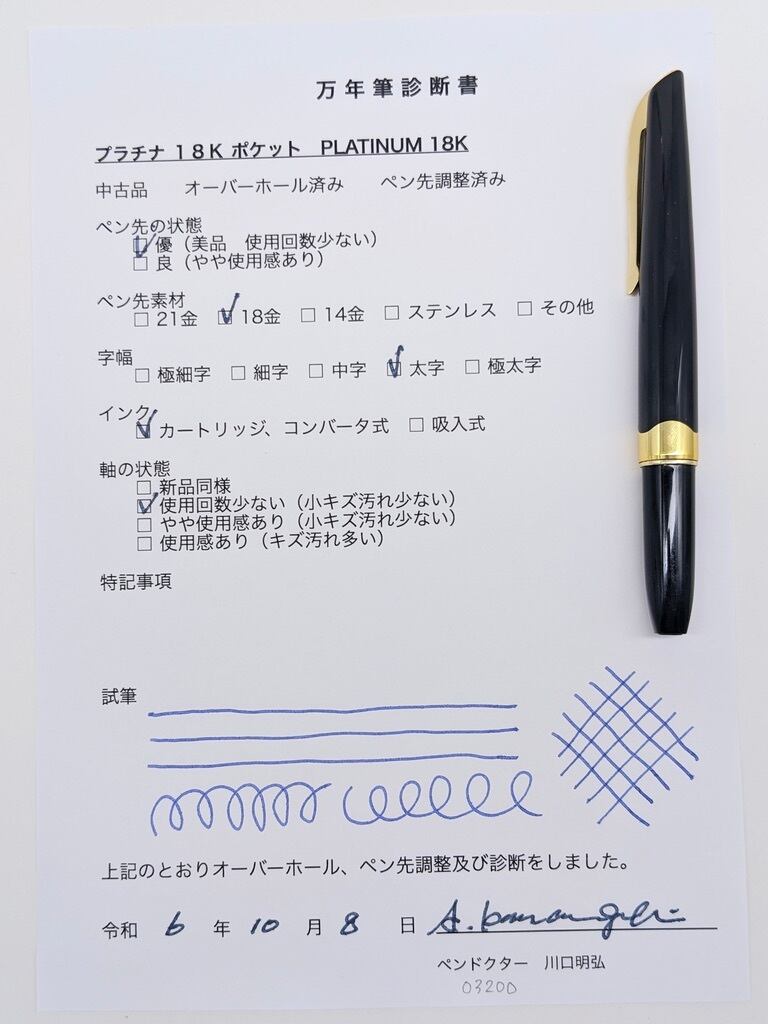 万年筆診断書
プラチナ １８Ｋ ポケット　PLATINUM 18K
中古品　　オーバーホール済み　　ペン先調整済み
ペン先の状態
☑ 優（美品　使用回数少ない）
□ 良（やや使用感あり）
ペン先素材
□ 21金　☑ 18金　□ 14金　□ ステンレス　□ その他
字幅
□ 極細字　□ 細字　□ 中字　☑ 太字　□ 極太字
インク
☑ カートリッジ、コンバータ式　□ 吸入式
軸の状態
□ 新品同様
☑ 使用回数少ない（小キズ汚れ少ない）
□ やや使用感あり（小キズ汚れ少ない）
□ 使用感あり（キズ汚れ多い）
特記事項
試筆
上記のとおりオーバーホール、ペン先調整及び診断をしました。
令和 6 年 10 月 8 日
ペンドクター　川口明弘
03200